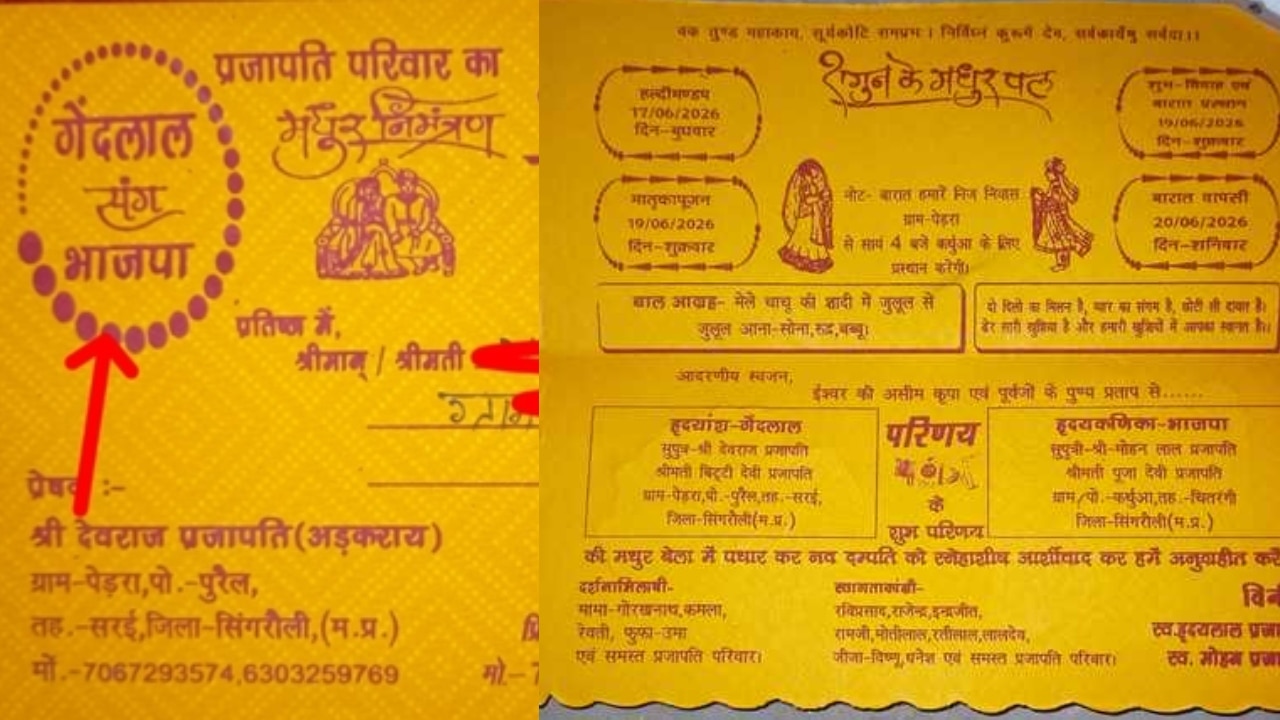 प्रजापति परिवार का
मधुर निमंत्रण
गेंदलाल
संग
भाजपा
प्रतिष्ठा में,
श्रीमान् / श्रीमती
:-
श्री देवराज प्रजापति(अड़कराय)
ग्राम-पेड़रा,पो.-पुरैल,
तह.-सरई,जिला-सिंगरौली,(म.प्र.)
मों.-7067293574,6303259769
मो.-7
वक तुण्ड महाकाय, सूर्यकोटि समप्रभ। निर्विघ्नं कुरूमे देव, सर्वकार्येषु सर्वदा।।
शगुन के मधुर पल
हल्दीमण्डप
17/06/2026
दिन-बुधवार
शुभ-विवाह एवं
बारात प्रस्थान
19/06/2026
दिन-शुक्रवार
मातृकापूजन
19/06/2026
दिन-शुक्रवार
नोट- बारात हमारें निज निवास
ग्राम-पेड़रा
से सायं 4 बजे कर्चुआ के लिए
प्रस्थान करेंगी।
बारात वापसी
20/06/2026
दिन-शनिवार
बाल आग्रह- मेले चाचू की शादी में जुलूल से
जुलूल आना-सोना,रूद्र,बब्बू।
दो दिलो का मिलन है, प्यार का संगम है, छोटी सी दावत है।
ढेर सारी खुशिया है और हमारी खुशियों में आपका स्वागत है।।
आदरणीय स्वजन,
ईश्वर की असीम कृपा एवं पूर्वजों के पुण्य प्रताप से......
हृदयांश-गेंदलाल
सुपुत्र-श्री देवराज प्रजापति
श्रीमती बिट्टी देवी प्रजापति
ग्राम-पेड़रा,पो.-पुरैल,तह.-सरई,
जिला-सिंगरौली(म.प्र.)
परिणय
के
शुभ परिणय
हृदयकणिका-भाजपा
सुपुत्री-श्री-मोहन लाल प्रजापति
श्रीमती पुजा देवी प्रजापति
ग्राम/पो.-कर्चुआ,तह.-चितरंगी
जिला-सिंगरौली(म.प्र.)
की मधुर बेला में पधार कर नव दम्पति को स्नेहाशीष आर्शीवाद कर हमें अनुग्रहीत करें
दर्शनाभिलाषी-
मामा-गोरखनाथ,कमला,
रेवती, फुफा-उमा
एवं समस्त प्रजापति परिवार।
स्वागताकांक्षी-
रविप्रसाद,राजेन्द्र,इन्द्रजीत,
रामजी,मोतीलाल,रतीलाल,लालदेव,
जीजा-विष्णू,धनेश एवं समस्त प्रजापति परिवार।
स्व.हृदयलाल
स्व. मोहन